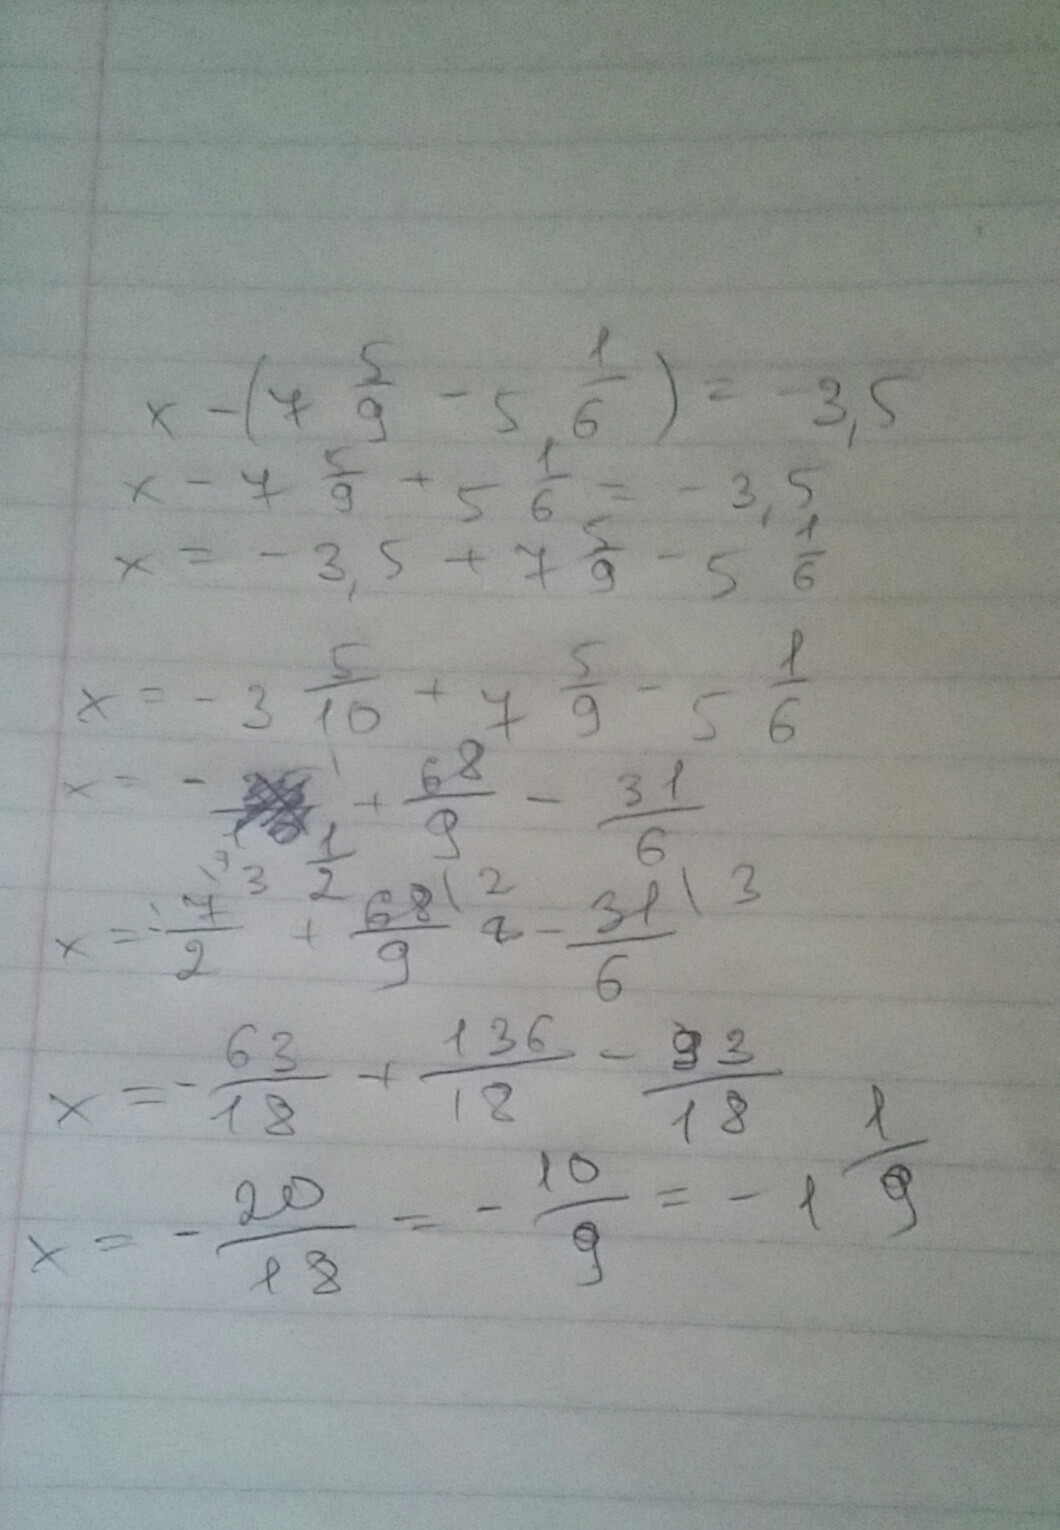 x - (7 5/9 - 5 1/6) = -3,5
x - 7 5/9 + 5 1/6 = -3,5
x = -3,5 + 7 5/9 - 5 1/6
x = -3 5/10 + 7 5/9 - 5 1/6
x = - 3 1/2 + 68/9 - 31/6
x = -7/2 \9 + 68/9 \2 - 31/6 \3
x = -63/18 + 136/18 - 93/18
x = -20/18 = -10/9 = -1 1/9